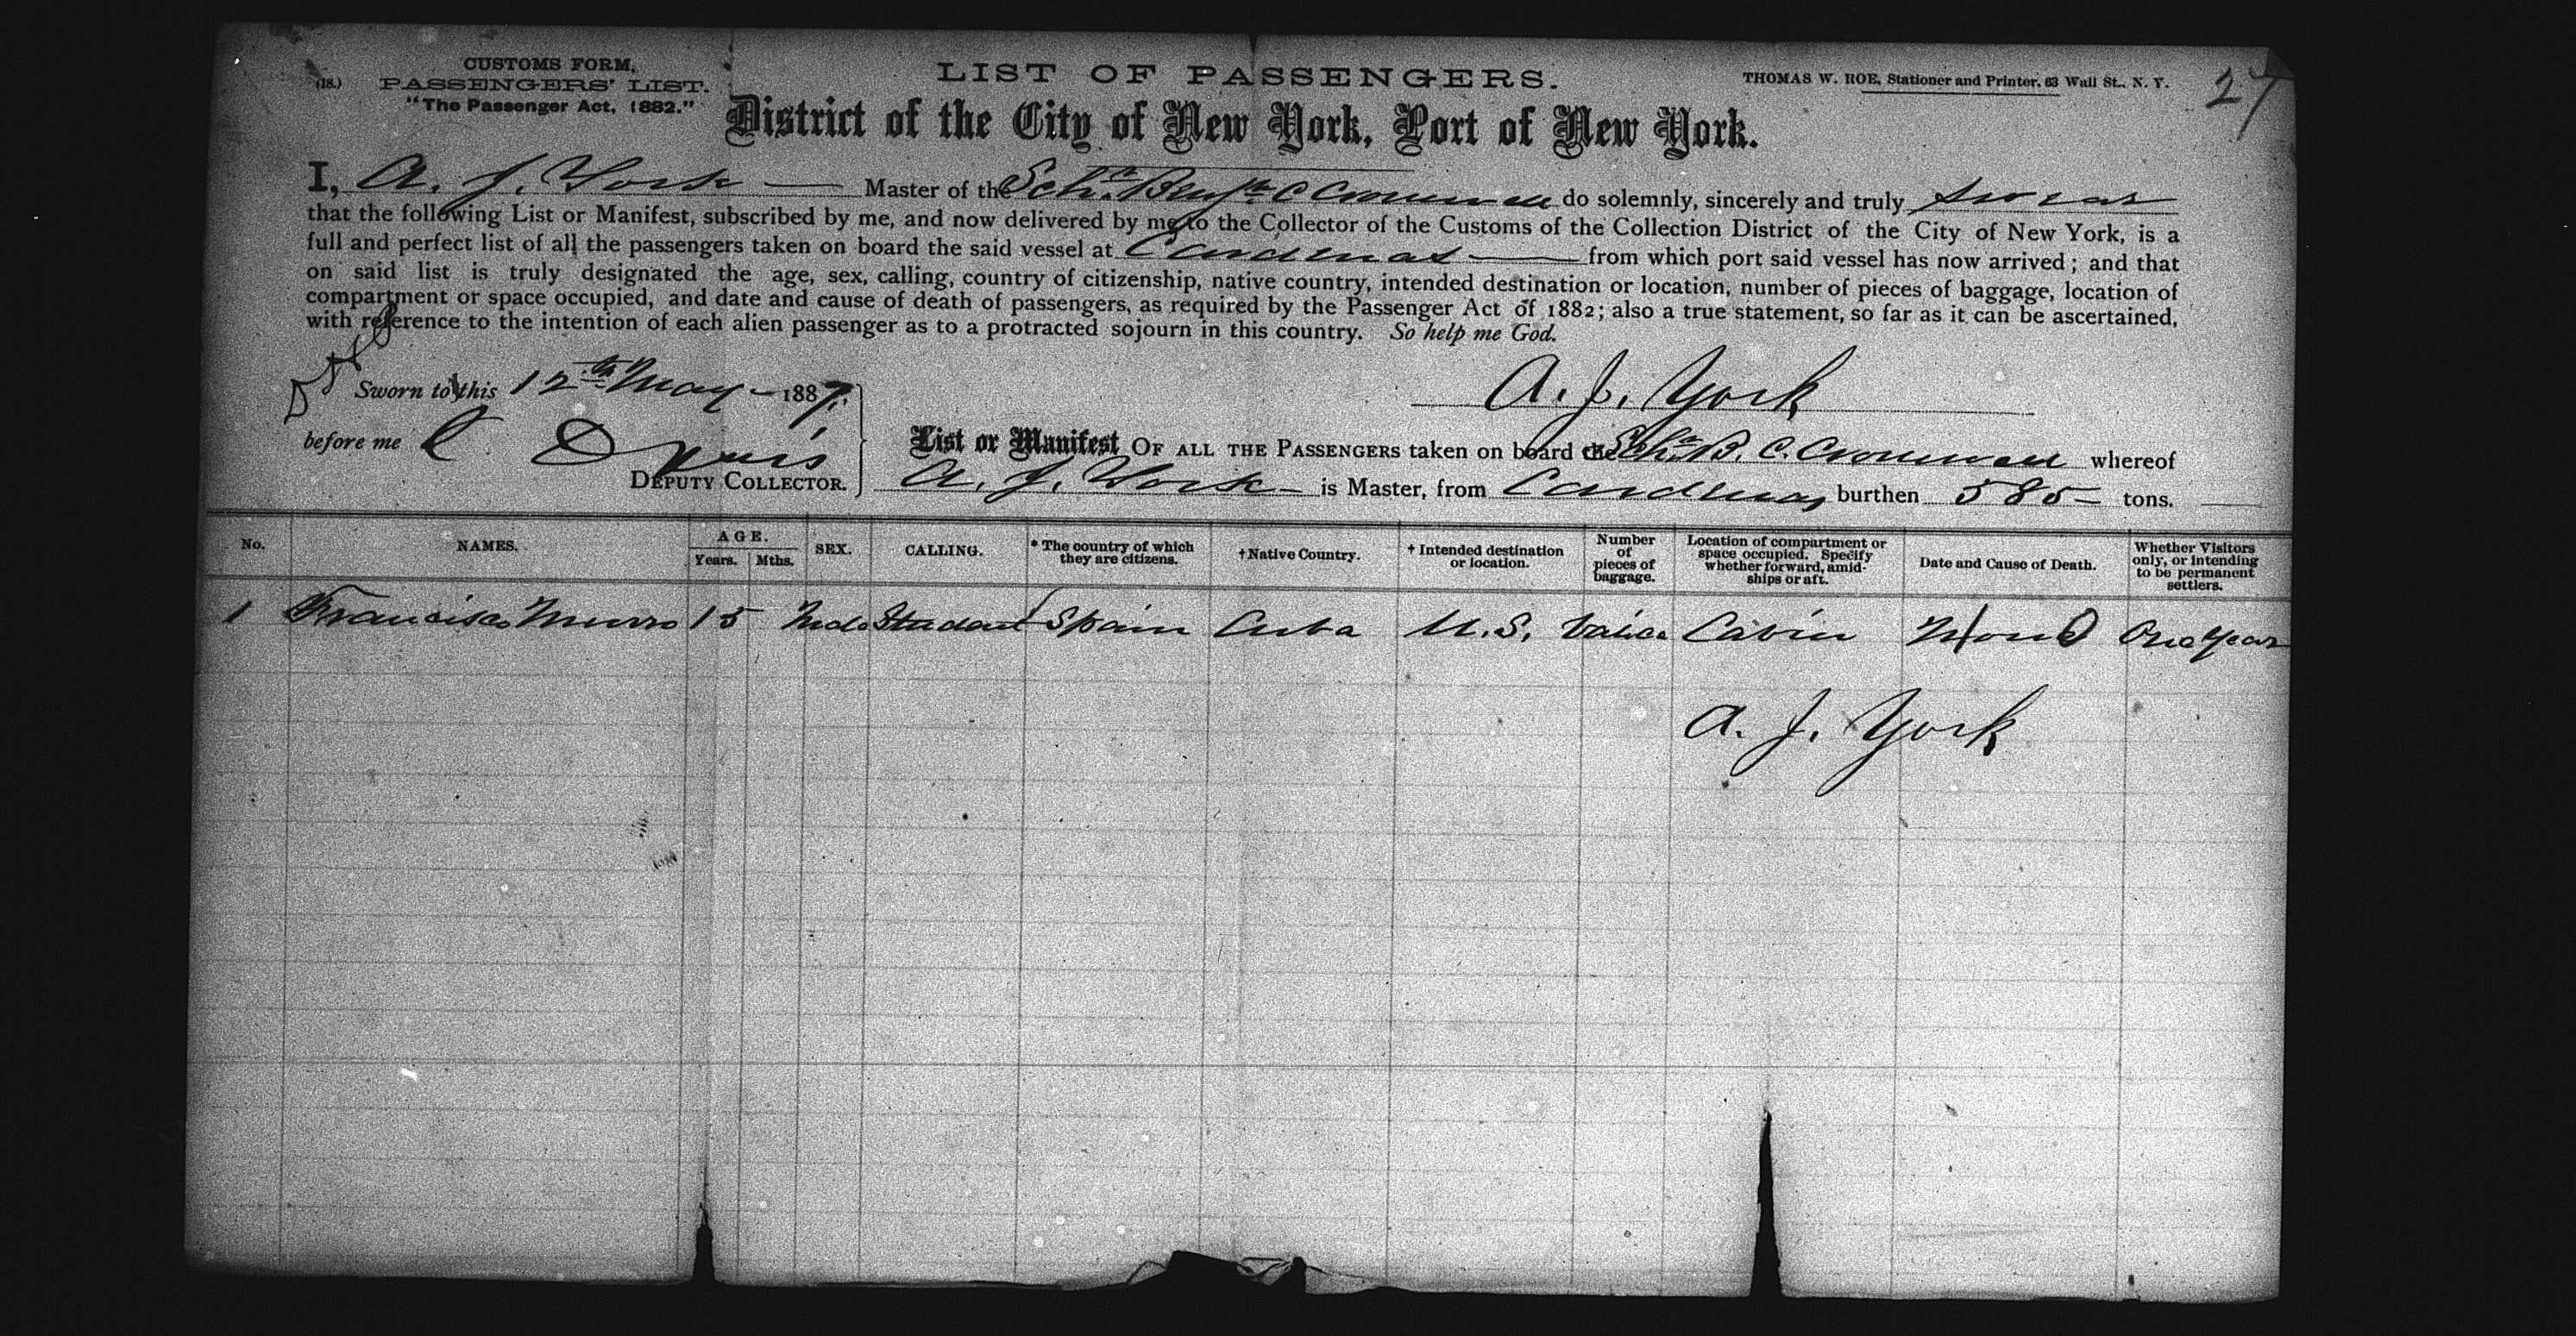 (18.)
CUSTOMS FORM,
PASSENGERS' LIST.
"The Passenger Act, 1882."
LIST OF PASSENGERS.
THOMAS W. ROE, Stationer and Printer, 63 Wall St., N. Y.
27
District of the City of New York, Port of New York.
I, A. J. York Master of the Schr. Benjn. C Cromwell do solemnly, sincerely and truly swear
that the following List or Manifest, subscribed by me, and now delivered by me to the Collector of the Customs of the Collection District of the City of New York, is a
full and perfect list of all the passengers taken on board the said vessel at Cardenas from which port said vessel has now arrived; and that
on said list is truly designated the age, sex, calling, country of citizenship, native country, intended destination or location, number of pieces of baggage, location of
compartment or space occupied, and date and cause of death of passengers, as required by the Passenger Act of 1882; also a true statement, so far as it can be ascertained,
with reference to the intention of each alien passenger as to a protracted sojourn in this country. So help me God.
Sworn to this 12th May 1887.
A. J. York
before me
DEPUTY COLLECTOR.
List or Manifest OF ALL THE PASSENGERS taken on board the Schr. B. C. Cromwell whereof
A. J. York is Master, from Cardenas burthen 585 tons.
No. NAMES. AGE. Years. Mths. SEX. CALLING. * The country of which they are citizens. † Native Country. † Intended destination or location. Number of pieces of baggage. Location of compartment or space occupied. Specify whether forward, amidships or aft. Date and Cause of Death. Whether Visitors only, or intending to be permanent settlers.
1 Francisco 15 Male Student Spain Cuba U.S. Valice Cabin None One Year
A. J. York